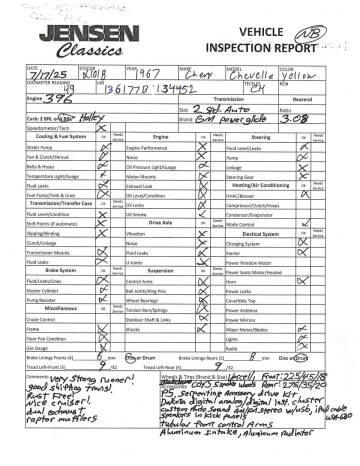 JENSEN
Classics
VEHICLE
INSPECTION REPORT
NB
DATE STOCK# YEAR MAKE MODEL COLOR
7/17/25 2101B 1967 Chevy Chevelle Yellow
ODOMETER READING VIN TECH
49 136177B 134452 CH
Engine 396 Transmission Rearend
Size 2 Spd. Auto Ratio
Carb: 2 BRL or 4 BRL Holley Brand GM powerglide 3.08
Speedometer/Tach
Cooling & Fuel System OK Needs Service Engine OK Needs Service Steering OK Needs Service
Water Pump Engine Performance Fluid Level/Leaks
Fan & Clutch/Shroud Noise Pump
Belts & Hoses Oil Pressure Light/Guage Linkage
Temperature Light/Guage Motor Mounts Steering Gear
Fluid Leaks Exhaust Leak Heating/Air Conditioning
Fuel Pump/Tank & Lines Oil Level/Condition HVAC/Blower
Transmission/Transfer Case Oil Leaks Compressor/Clutch/Hoses
Fluid Level/Condition Oil Smoke Condensor/Evaporator
Shift Points (if automatic) Drive Axle Mode Control
Slipping/Binding Vibration Electical System
Clutch/Linkage Noise Charging System
Transmission Mounts Fluid Leaks Starter
Fluid Leaks U-Joints Power Window Motor
Brake System Suspension Power Seats Motor/Heated
Fluid Leak/Lines Control Arms Horn
Master Cylinder Ball Joints/King Pins Power Locks
Pump/Booster Wheel Bearings Covertible Top
Miscellaneous Torsion Bars/Springs Power Antenna
Cruise Control Stabilizer Shaft & Links Power Mirrors
Frame Shocks Wiper Motor/Blades
Floor Pan Condition Lights
Gas Gauge Radio
Brake Linings Fronts (S) 6 mm Disc or Drum Brake Linings Rears (S) 8 mm Disc or Drum
Tread Left-Front (S) 9 /32 Tread Left-Rear (S) 9 /32
Comments Wheels & Tires (Brand & Size) Accell, Front: 225/45/18
very strong runner! Accessories Coys 5 spoke wheels Rear: 275/35/20
good shifting trans! PS, Serpentine Accessory drive kit
Rust Free! Dakota digital analog/digital inst. cluster
Nice cruiser! custom Auto Sound am/fm stereo w/usb, ipod cable
dual exhaust speakers in kick panels
raptor mufflers tubular front control Arms
Aluminum Intake, Aluminum radiator